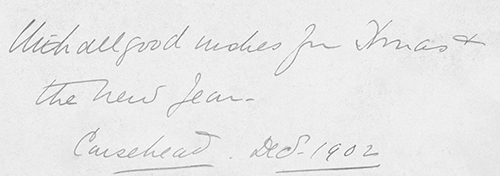 With all good wishes for Xmas &
the New Year -
Carsehead. Dec. 1902